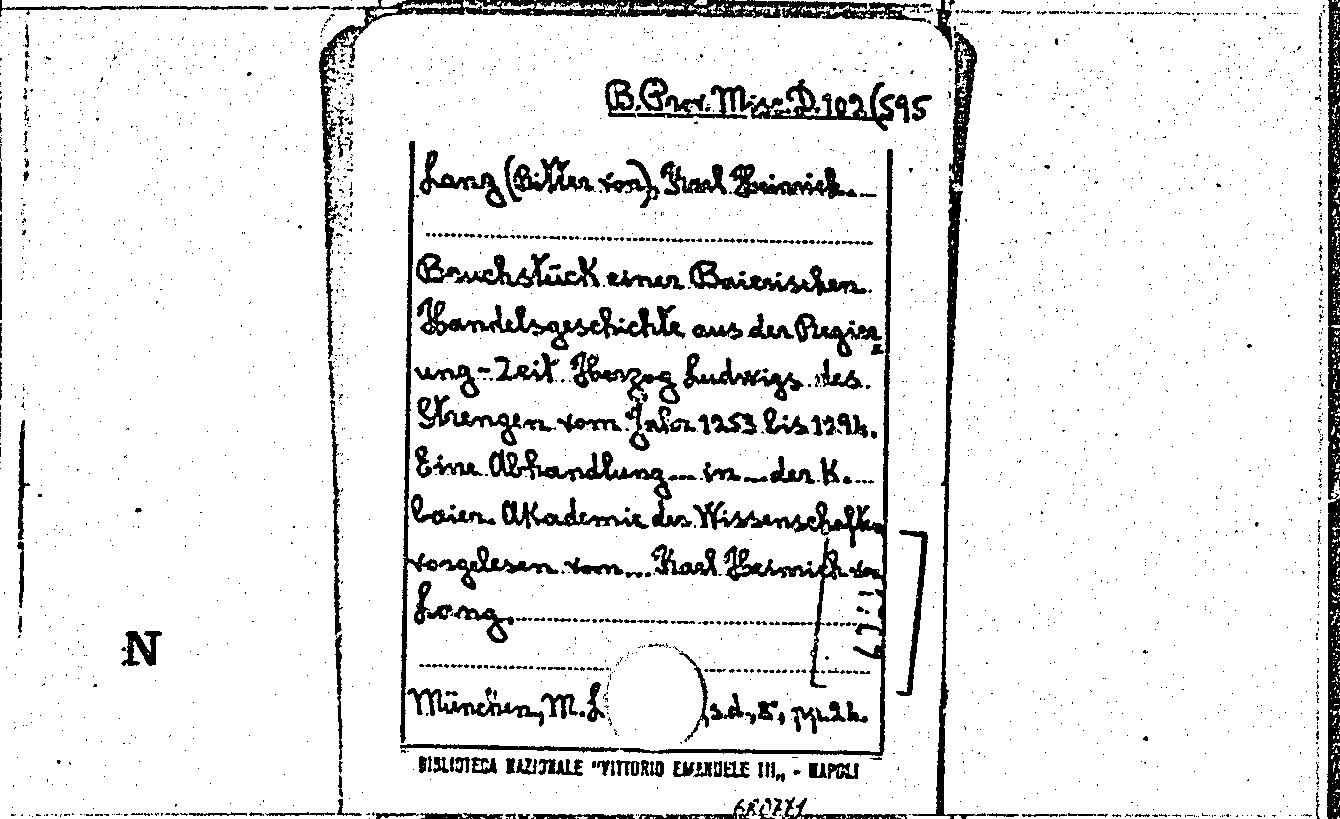 B. Prov. Misc. D. 102(595
Lang (Ritter von), Karl Heinrich.
Bruchstück einer Baierischen
Handelsgeschichte aus der Regier=
ung-Zeit Herzog Ludwigs des
Strengen vom Jahr 1253 bis 1294.
Eine Abhandlung... in... der K.
baier. Akademie der Wissenschaften
vorgelesen vom... Karl Heinrich von
Lang.
München, M. L , s.d., 8°, pp. 24.
BIBLIOTECA NAZIONALE "VITTORIO EMANUELE III" - NAPOLI
680771
N